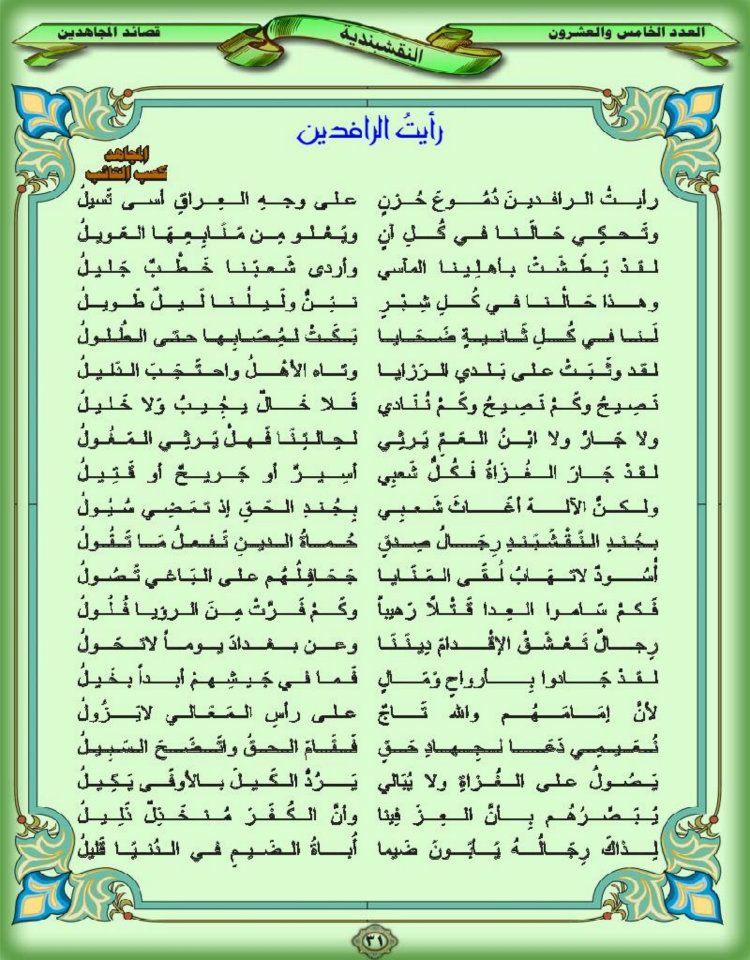 العدد الخامس والعشرون
النقشبندية
قصائد المجاهدين
رأيتُ الرافدين
المجاهد
محب النائب
رأيتُ الرافدينَ دُمُوعَ حُزنٍ على وجهِ العِراقِ أسى تَسيلُ
وتَحكِي حَالَنا في كُلِ آنٍ ويَعْلو مِن مَنَابِعِهَا العَويلُ
لقدْ بَطَشَتْ بأهلِينا المآسي وأردى شَعبَنا خَطْبٌ جَليلُ
وهذا حَالُنا في كُلِ شِبْرٍ نئِنُّ ولَيلُنا لَيلٌ طَويلُ
لَنا في كُلِ ثَانيةٍ ضَحَايا بَكَتْ لمُصَابِها حتى الطُلولُ
لقد وثَبَتْ على بَلدي الرَزايا وتاه الأهْلُ واحتَجَبَ الدَليلُ
نَصِيحُ وكَمْ نَصِيحُ وكَمْ نُنَادي فَلا خَالٌ يجُيبُ ولا خَليلُ
ولا جَارٌ ولا ابْنُ العَمِّ يَرثِي لحِالتِنَا فَهلْ يَرثِي المَغُولُ
لقدْ جَارَ الغُزاةُ فَكُلُّ شَعبِي أسِيرٌ أو جَريحٌ أو قَتِيلُ
ولكنَّ الآلهَ أغَاثَ شَعبِي بجُندِ الحَقِ إذ تمَضِي سُيُولُ
بجُندِ النَقْشَبَندِ رِجَالُ صِدقٍ حُمَاةُ الدينِ تَفعلُ مَا تَقُولُ
أسُودٌ لاتهَابُ لُقَى المَنَايا جَحَافِلُهُم على البَاغي تَصُولُ
فَكمْ سَاموا العِدا قَتْلاً رَهيباً وكَمْ فَرَّتْ مِنَ الرؤيا فُلُولُ
رِجالٌ تَعْشَقُ الإقْدامَ دِينَنَا وعن بغدادَ يوماً لاتحَولُ
لقَدْ جَادوا بِأرواحٍ وَمَالٍ فَما في جَيشِهمْ أبَداً بخَيلُ
لأنَّ إمَامَهُم واللهِ تَاجٌ على رأسِ المَعَالي لايَزُولُ
نُعَيمِي دَعَا لجِهادِ حَقٍ فَقَامَ الحقُ واتَّضَحَ السَبِيلُ
يَصُولُ على الغُزاةِ ولا يُبَالي يَرُدُّ الكَيلَ بالأوفَى يَكِيلُ
يُبَصِّرُهُم بِأنَّ العِزَ فِينا وأنَّ الكُفرَ مُنخَذِلٌ ذَلِيلُ
لِذاكَ رِجَالُهُ يَأبَونَ ضَيما أُباةُ الضَيمِ في الدُنيَا قَلِيلُ
٣١